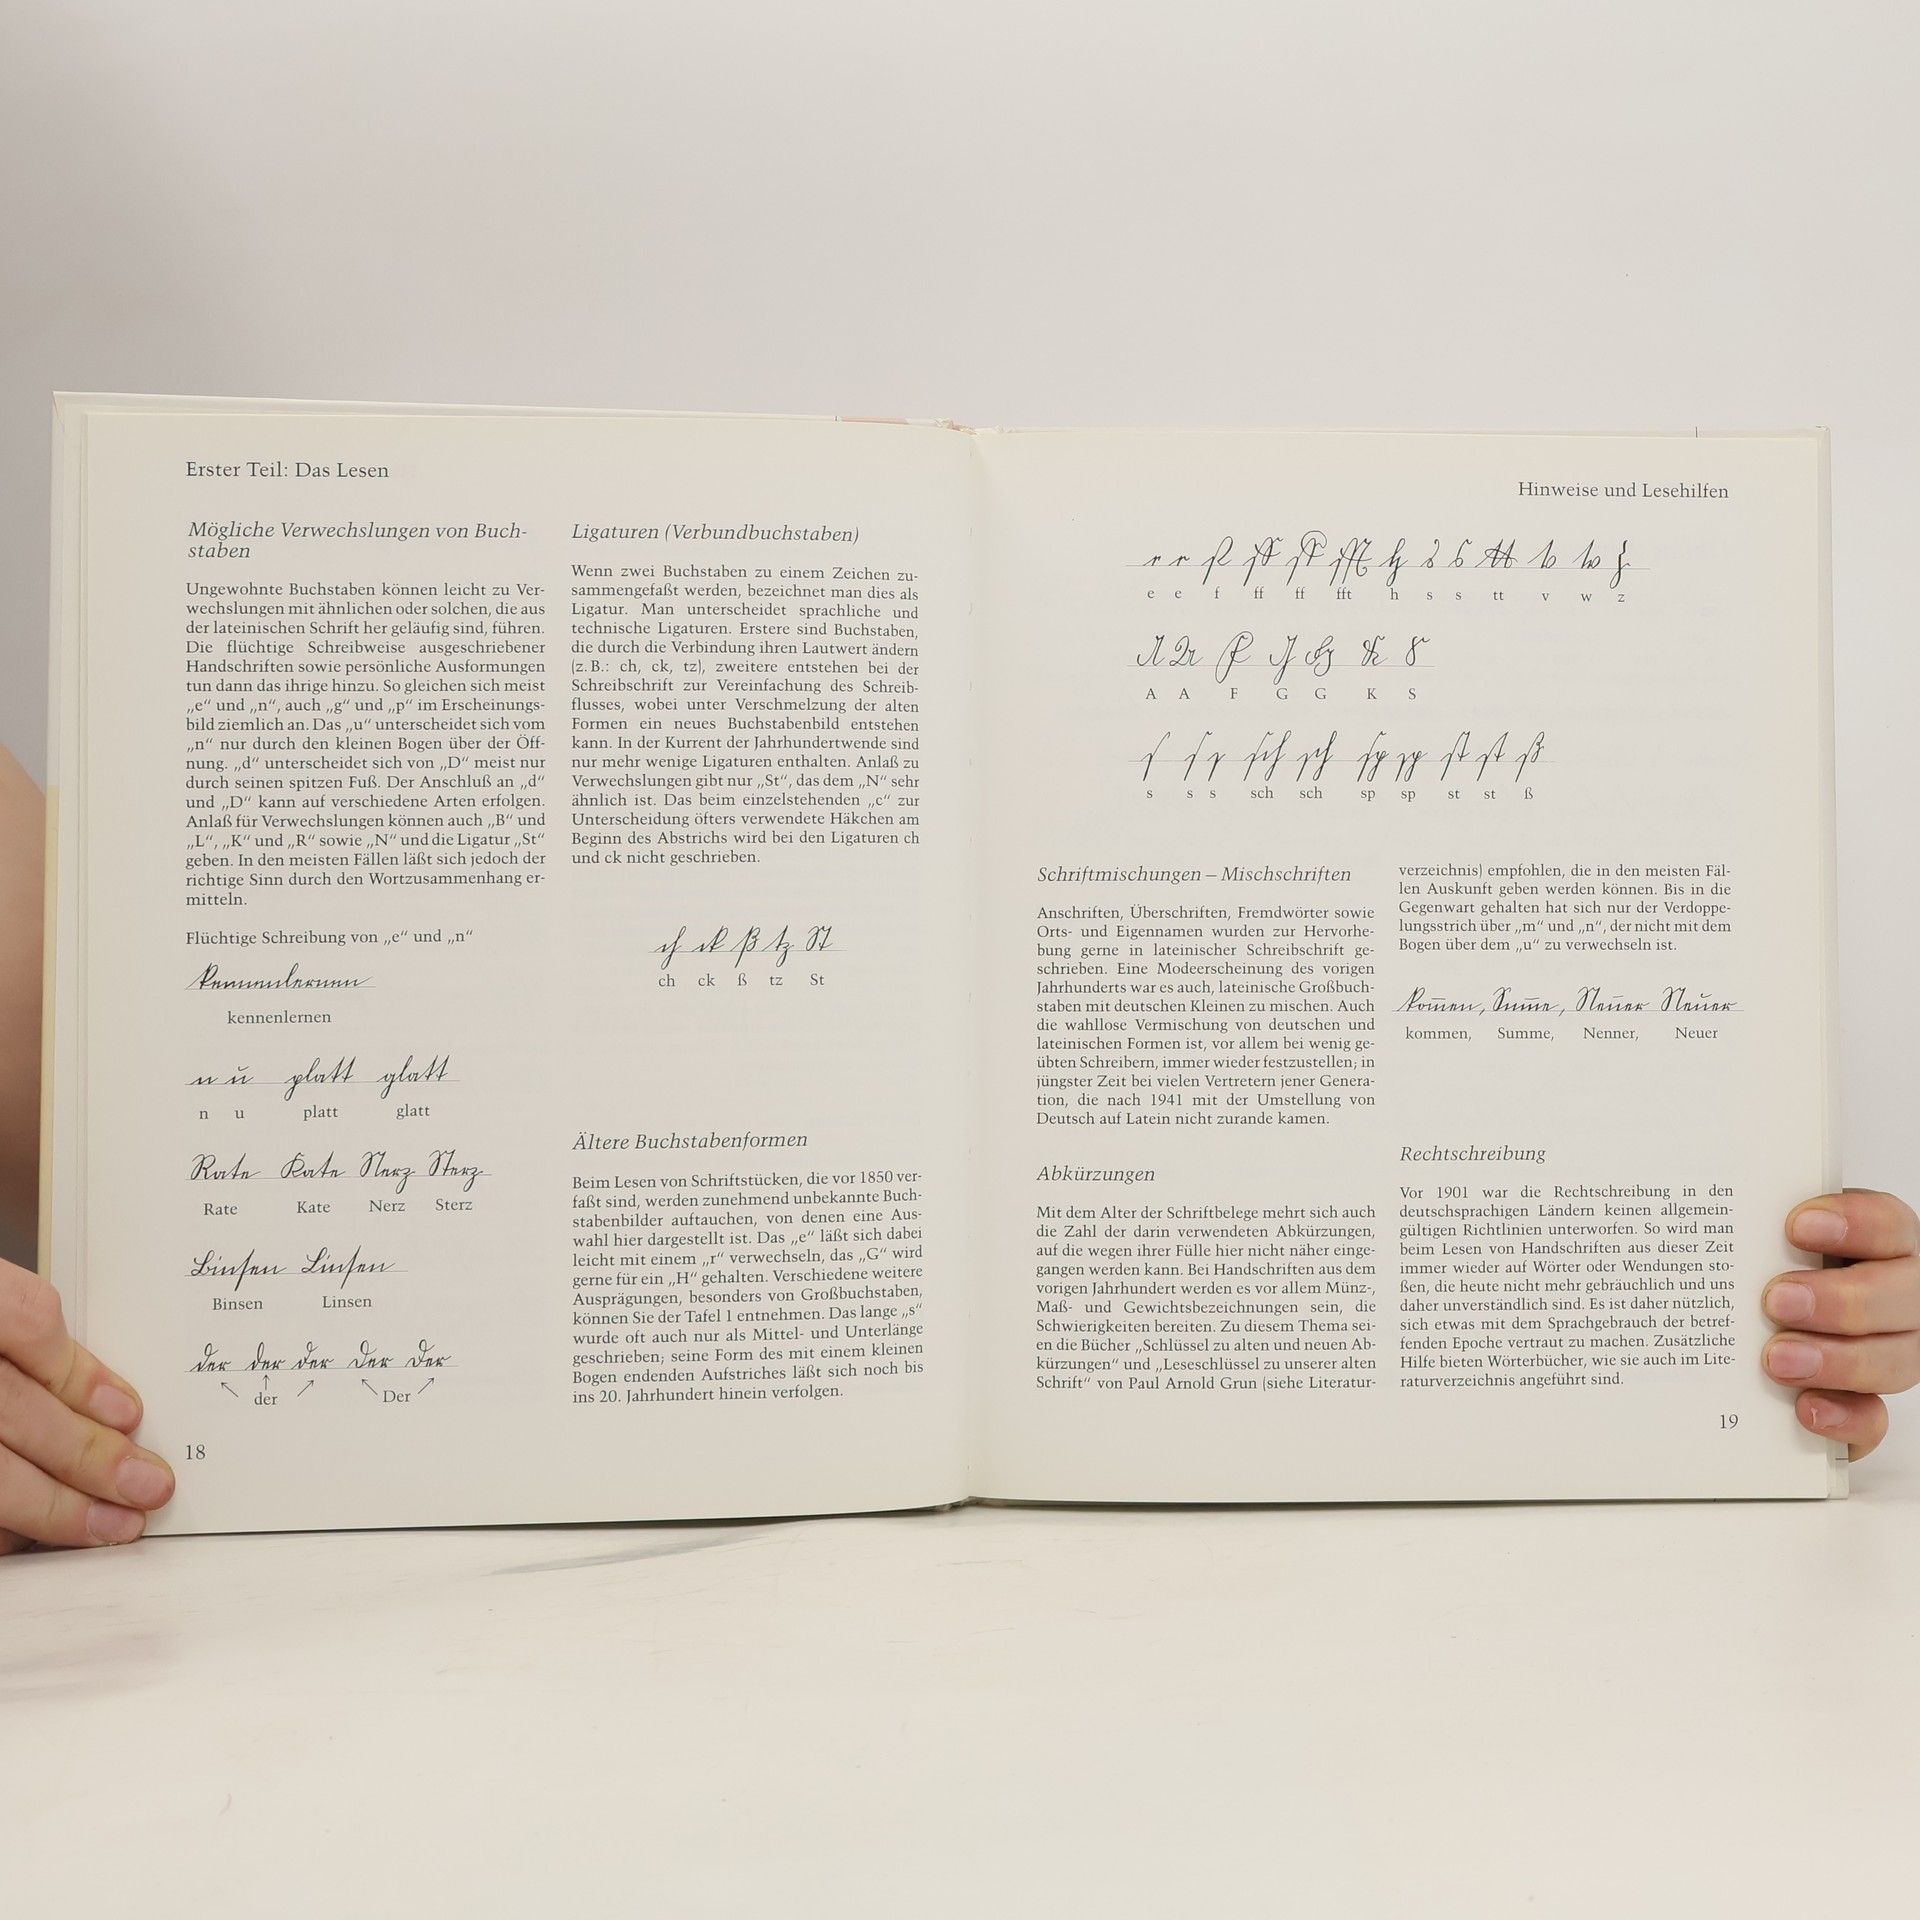 Erster Teil: Das Lesen
Mögliche Verwechslungen von Buch-
staben
Ungewohnte Buchstaben können leicht zu Ver-
wechslungen mit ähnlichen oder solchen, die aus
der lateinischen Schrift her geläufig sind, führen.
Die flüchtige Schreibweise ausgeschriebener
Handschriften sowie persönliche Ausformungen
tun dann das ihrige hinzu. So gleichen sich meist
„e“ und „n“, auch „g“ und „p“ im Erscheinungs-
bild ziemlich an. Das „u“ unterscheidet sich vom
„n“ nur durch den kleinen Bogen über der Öff-
nung. „d“ unterscheidet sich von „D“ meist nur
durch seinen spitzen Fuß. Der Anschluß an „d“
und „D“ kann auf verschiedene Arten erfolgen.
Anlaß für Verwechslungen können auch „B“ und
„L“, „K“ und „R“ sowie „N“ und die Ligatur „St“
geben. In den meisten Fällen läßt sich jedoch der
richtige Sinn durch den Wortzusammenhang er-
mitteln.
Flüchtige Schreibung von „e“ und „n“
kennenlernen
kennenlernen
n u platt glatt
n u platt glatt
Rate Kate Nerz Sterz
Rate Kate Nerz Sterz
Binsen Linsen
Binsen Linsen
der der der Der Der
der Der
18
Ligaturen (Verbundbuchstaben)
Wenn zwei Buchstaben zu einem Zeichen zu-
sammengefaßt werden, bezeichnet man dies als
Ligatur. Man unterscheidet sprachliche und
technische Ligaturen. Erstere sind Buchstaben,
die durch die Verbindung ihren Lautwert ändern
(z. B.: ch, ck, tz), zweitere entstehen bei der
Schreibschrift zur Vereinfachung des Schreib-
flusses, wobei unter Verschmelzung der alten
Formen ein neues Buchstabenbild entstehen
kann. In der Kurrent der Jahrhundertwende sind
nur mehr wenige Ligaturen enthalten. Anlaß zu
Verwechslungen gibt nur „St“, das dem „N“ sehr
ähnlich ist. Das beim einzelstehenden „c“ zur
Unterscheidung öfters verwendete Häkchen am
Beginn des Abstrichs wird bei den Ligaturen ch
und ck nicht geschrieben.
ch ck ß tz St
ch ck ß tz St
Ältere Buchstabenformen
Beim Lesen von Schriftstücken, die vor 1850 ver-
faßt sind, werden zunehmend unbekannte Buch-
stabenbilder auftauchen, von denen eine Aus-
wahl hier dargestellt ist. Das „e“ läßt sich dabei
leicht mit einem „r“ verwechseln, das „G“ wird
gerne für ein „H“ gehalten. Verschiedene weitere
Ausprägungen, besonders von Großbuchstaben,
können Sie der Tafel 1 entnehmen. Das lange „s“
wurde oft auch nur als Mittel- und Unterlänge
geschrieben; seine Form des mit einem kleinen
Bogen endenden Aufstriches läßt sich noch bis
ins 20. Jahrhundert hinein verfolgen.
Hinweise und Lesehilfen
e e f ff ff fft h s s tt v w z
e e f ff ff fft h s s tt v w z
A A F G G K S
A A F G G K S
s s s sch sch sp sp st st ß
s s s sch sch sp sp st st ß
Schriftmischungen – Mischschriften
Anschriften, Überschriften, Fremdwörter sowie
Orts- und Eigennamen wurden zur Hervorhe-
bung gerne in lateinischer Schreibschrift ge-
schrieben. Eine Modeerscheinung des vorigen
Jahrhunderts war es auch, lateinische Großbuch-
staben mit deutschen Kleinen zu mischen. Auch
die wahllose Vermischung von deutschen und
lateinischen Formen ist, vor allem bei wenig ge-
übten Schreibern, immer wieder festzustellen; in
jüngster Zeit bei vielen Vertretern jener Genera-
tion, die nach 1941 mit der Umstellung von
Deutsch auf Latein nicht zurande kamen.
Abkürzungen
Mit dem Alter der Schriftbelege mehrt sich auch
die Zahl der darin verwendeten Abkürzungen,
auf die wegen ihrer Fülle hier nicht näher einge-
gangen werden kann. Bei Handschriften aus dem
vorigen Jahrhundert werden es vor allem Münz-,
Maß- und Gewichtsbezeichnungen sein, die
Schwierigkeiten bereiten. Zu diesem Thema sei-
en die Bücher „Schlüssel zu alten und neuen Ab-
kürzungen“ und „Leseschlüssel zu unserer alten
Schrift“ von Paul Arnold Grun (siehe Literatur-
verzeichnis) empfohlen, die in den meisten Fäl-
len Auskunft geben werden können. Bis in die
Gegenwart gehalten hat sich nur der Verdoppe-
lungsstrich über „m“ und „n“, der nicht mit dem
Bogen über dem „u“ zu verwechseln ist.
kom̄en, Sum̄e, Nen̄er Neuer
kommen, Summe, Nenner, Neuer
Rechtschreibung
Vor 1901 war die Rechtschreibung in den
deutschsprachigen Ländern keinen allgemein-
gültigen Richtlinien unterworfen. So wird man
beim Lesen von Handschriften aus dieser Zeit
immer wieder auf Wörter oder Wendungen sto-
ßen, die heute nicht mehr gebräuchlich und uns
daher unverständlich sind. Es ist daher nützlich,
sich etwas mit dem Sprachgebrauch der betref-
fenden Epoche vertraut zu machen. Zusätzliche
Hilfe bieten Wörterbücher, wie sie auch im Lite-
raturverzeichnis angeführt sind.
19